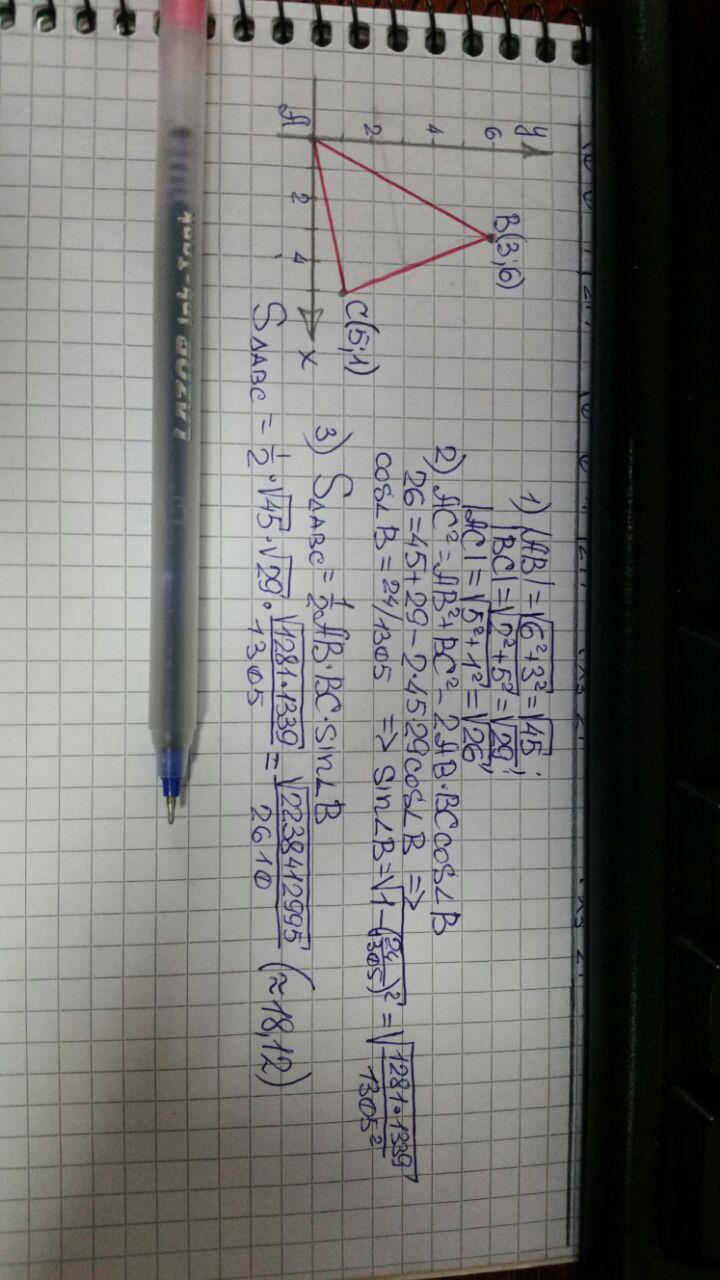 y
6
4
2
A
2
4
x
B(3;6)
C(5;1)
1) |AB| = √(6²+3²) = √45;
|BC| = √(2²+5²) = √29;
|AC| = √(5²+1²) = √26;
2) AC² = AB²+BC²-2AB·BCcos∠B
26 = 45+29-2·45·29cos∠B =>
cos∠B = 24/1305 => sin∠B = √(1-(24/1305)²) = √(1281·1339/1305²)
3) S△ABC = 1/2 AB·BC·sin∠B
S△ABC = 1/2·√45·√29·√(1281·1339)/1305 = √2238412995/2610 (≈18,12)